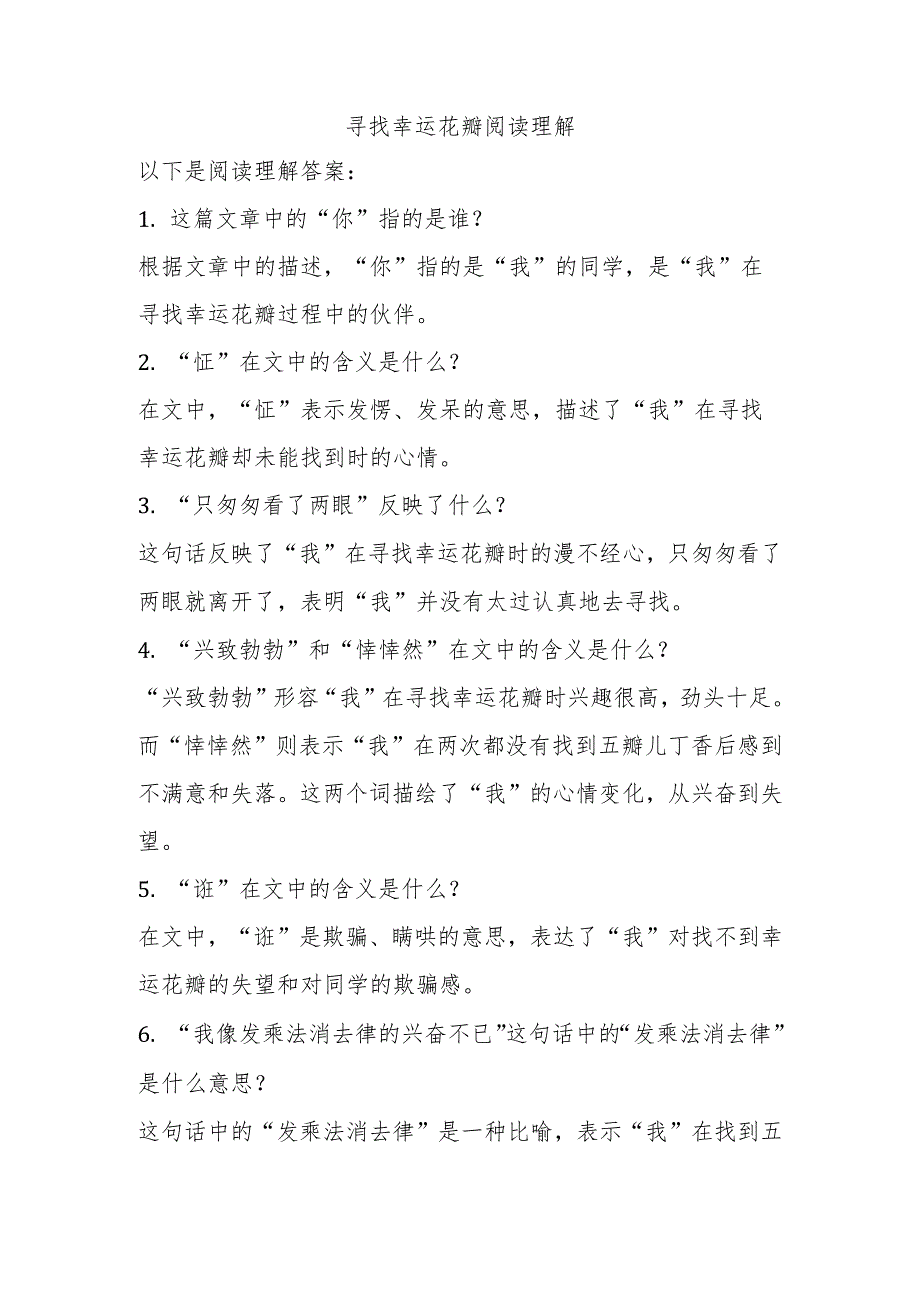 寻找幸运花瓣阅读理解
以下是阅读理解答案：
1. 这篇文章中的“你”指的是谁？
根据文章中的描述，“你”指的是“我”的同学，是“我”在
寻找幸运花瓣过程中的伙伴。
2. “怔”在文中的含义是什么？
在文中，“怔”表示发愣、发呆的意思，描述了“我”在寻找
幸运花瓣却未能找到时的心情。
3. “只匆匆看了两眼”反映了什么？
这句话反映了“我”在寻找幸运花瓣时的漫不经心，只匆匆看了
两眼就离开了，表明“我”并没有太过认真地去寻找。
4. “兴致勃勃”和“悻悻然”在文中的含义是什么？
“兴致勃勃”形容“我”在寻找幸运花瓣时兴趣很高，劲头十足。
而“悻悻然”则表示“我”在两次都没有找到五瓣儿丁香后感到
不满意和失落。这两个词描绘了“我”的心情变化，从兴奋到失
望。
5. “诳”在文中的含义是什么？
在文中，“诳”是欺骗、瞒哄的意思，表达了“我”对找不到幸
运花瓣的失望和对同学的欺骗感。
6. “我像发乘法消去律的兴奋不已”这句话中的“发乘法消去律”
是什么意思？
这句话中的“发乘法消去律”是一种比喻，表示“我”在找到五